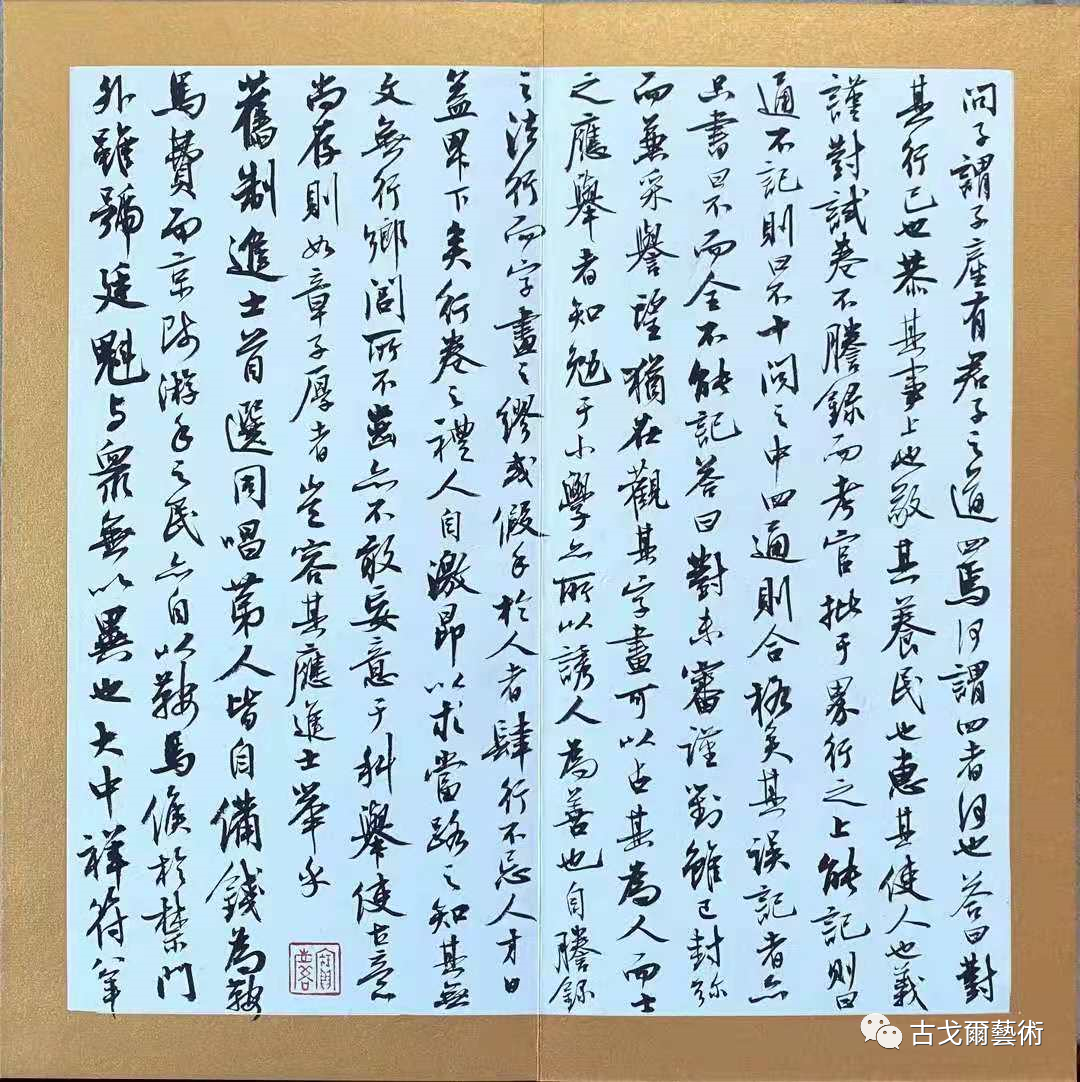 問子謂子產有君子之道四焉何謂四者何也答曰對
其行己也恭其事上也敬其養民也惠其使人也義
謹對試卷不謄錄而考官批于界行之上能記則曰
通不記則曰不十問之中四通則合格矣其誤記者亦
只書曰不而全不能記答曰對未審謹對雖已封彌
而兼采譽望猶在觀其字畫可以占其為人而士
之應舉者知勉于小學亦所以誘人為善也自謄錄
之法行而字畫之繆或假手於人者肆行不忌人才日
益卑下矣行卷之禮人自激昂以求當路之知其無
文無行鄉閭所不齒亦不敢妄意于科舉使古意
尚存則如章子厚者豈容其應進士舉乎
舊制進士首選同唱第人皆自備錢為鞍
馬費而京師游手之民亦自以鞍馬候於禁門
外雖號廷魁与眾無以異也大中祥符八年
古戈爾藝術